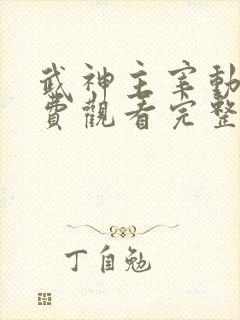 武神主宰動
費觀看完整
丁自勉